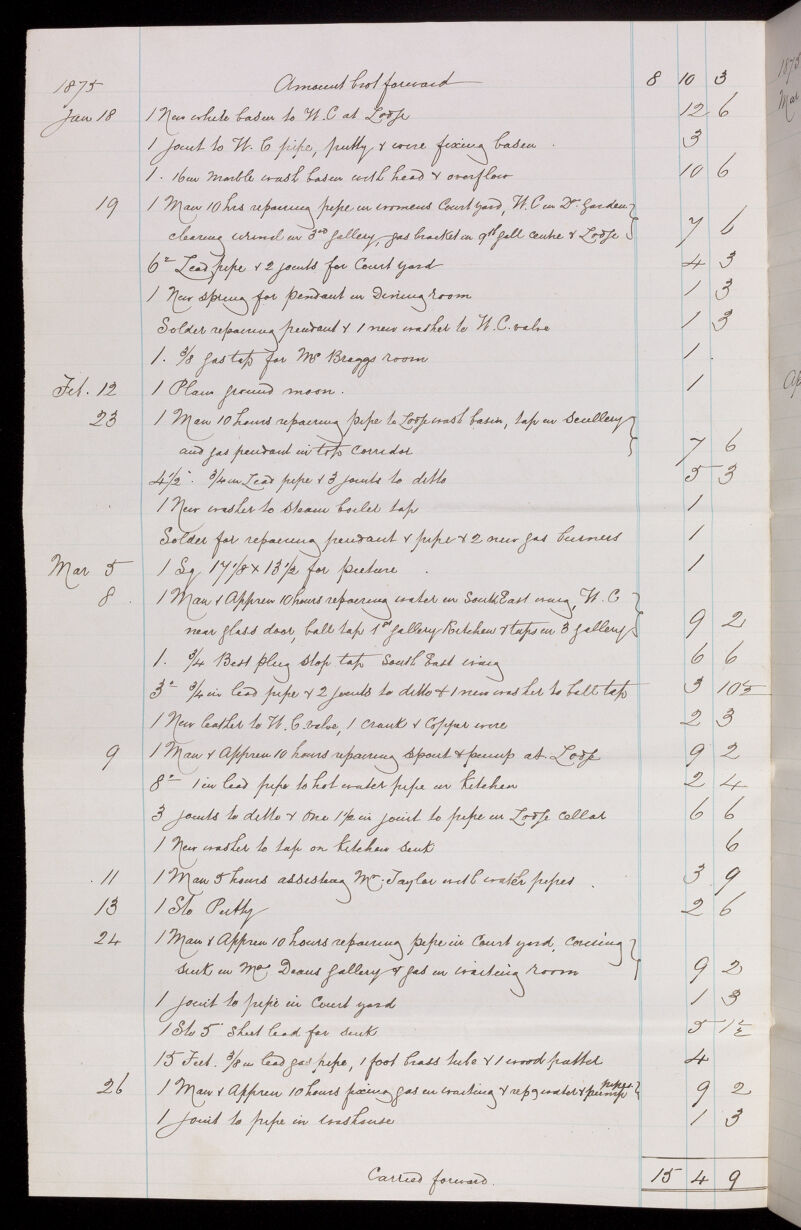 1875 Amount brot forward 8 10 3
Jan 18 1 New white basin to W.C at Lodge 12 6
1 joint to W.C pipe, putty & wire fixing basin . 3
1. 16in Marble wash basin with head & overflow 10 6
19 1 Man 10 hrs repairing pipe in womens Court yard, W.C in Dr Garden
clearing urinal in 3rd gallery, gas bracket in 9th gall centre & Lodge 7 6
6" Lead pipe & 2 joints for Court yard 4 3
1 New spring for pendant in Dining room 1 3
Solder repairing pendant & 1 new washer to W.C. valve 1 3
1. 3/8 gas tap for Mr Braggs room 1 .
Feb. 12 1 Plain ground moon. 1
23 1 Man 10 hours repairing pipe to Lodge wash basin, tap in Scullery
and gas pendant in top Corridor 7 6
4 1/2" 3/4 in Lead pipe & 3 joints to ditto 5 3
1 New washer to steam boiler tap 1
Solder for repairing pendant & pipe & 2 new gas burners 1
Mar 5 1 Sq 17 1/8 x 13 1/2 for picture . 1
8 . 1 Man & Appren 10 hours repairing water in South East wing, W.C
near glass door, ball tap 1st gallery Kitchen & taps in 3 gallery 9 2
1. 3/4 Best plug stop tap South East wing 6 6
3" 3/4 in lead pipe & 2 joints to ditto & 1 new washer to ball tap 3 10 1/2
1 New leather to W.C. valve, 1 crank & Copper wire 2 3
9 1 Man & Appren 10 hours repairing spout & pump at Lodge 9 2
8" 1 in lead pipe to hot water pipe in Kitchen 2 4
3 joints to ditto & One 1 1/2 in joint to pipe in Lodge Cellar 6 6
1 New washer to tap on Kitchen sink 6
. 11 1 Man 5 hours assisting Mr. Taylor with water pipes . 3 9
13 1 Sto Putty 2 6
24 1 Man & Appren 10 hours repairing pipe in Court yard, Covering
sink in Mrs Deans gallery & gas in waiting room 9 2
1 joint to pipe in Court yard 1 3
1 Sto 5" Sheet lead for sink 5 1 1/2
15 Feet. 3/8 in lead gas pipe, 1 foot brass tube & 1 wood patter 4
26 1 Man & Appren 10 hours fixing gas in waiting & repg water pipe & pump 9 2
1 joint to pipe in washouse 1 3
Carried forward. 15 4 9
1875
Mar
Ap